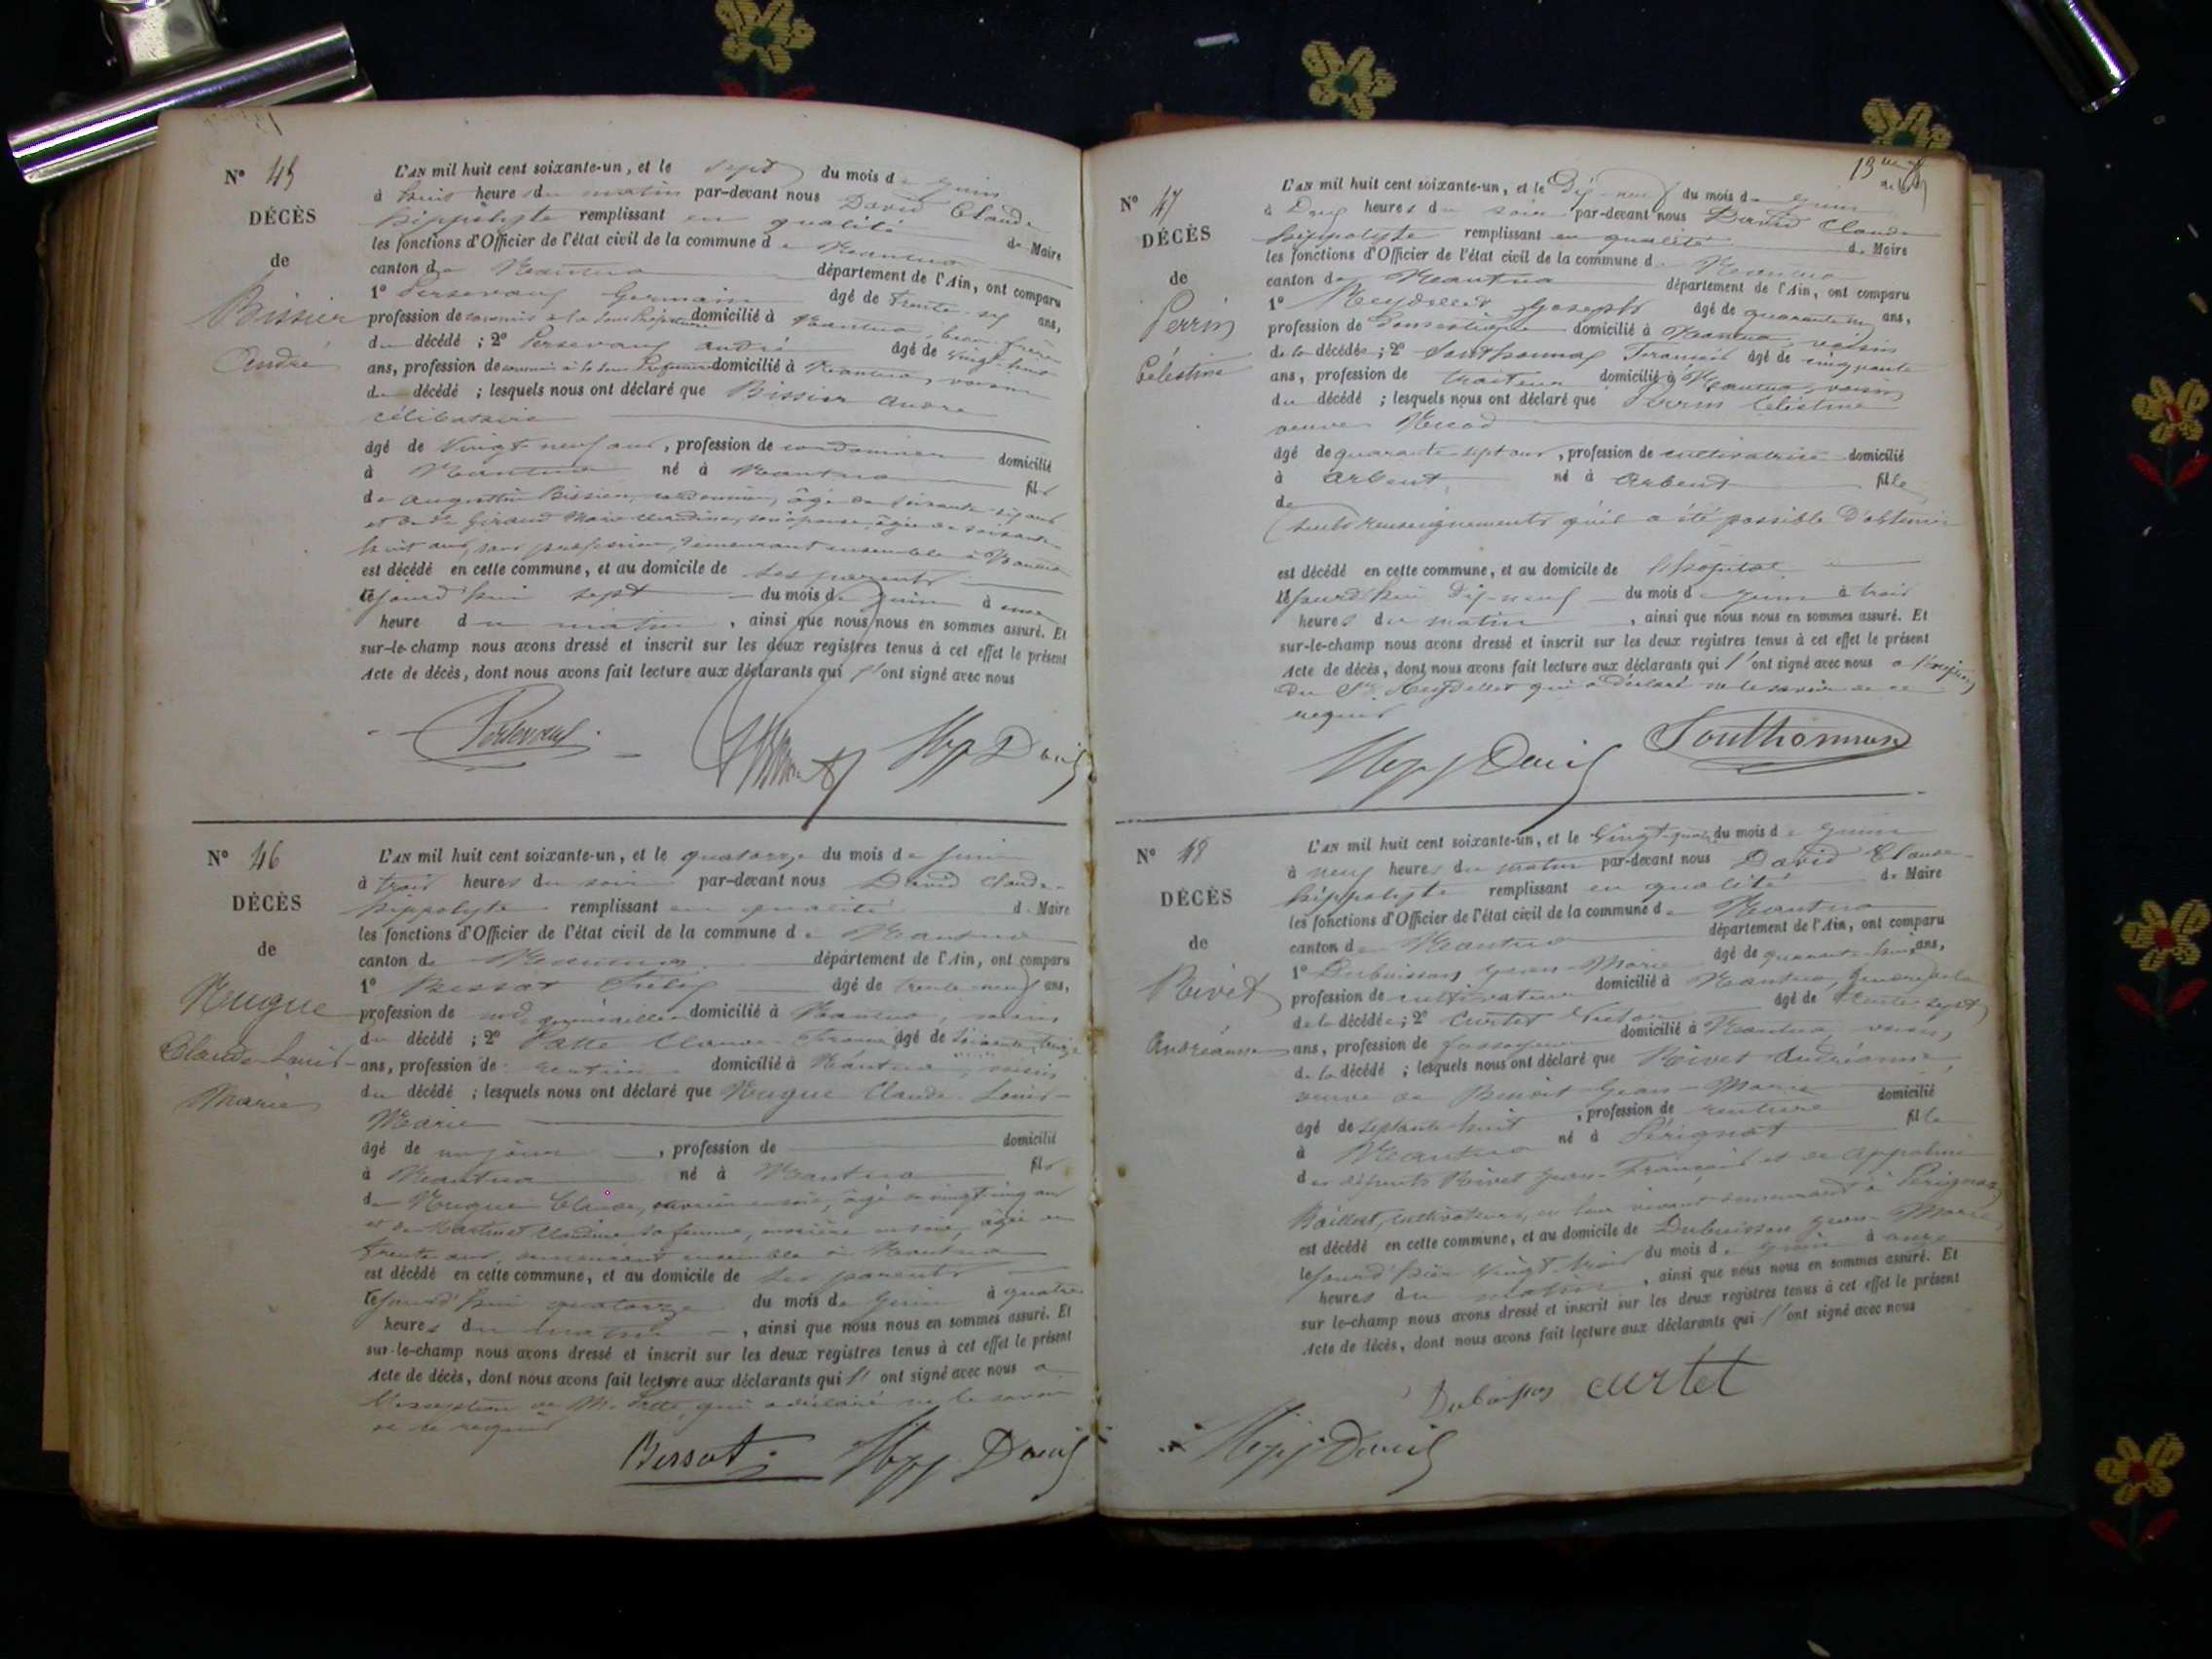 N° 45
DÉCÈS
de
Bissier
André
L'AN mil huit cent soixante-un, et le sept du mois de juin
à huit heure du matin par-devant nous David Claude
hippolyte remplissant en qualité de Maire
les fonctions d'Officier de l'état civil de la commune de Nantua
canton de Nantua département de l'Ain, ont comparu
1° Persevaux Germain âgé de trente-six ans,
profession de commis à la Sous Préfecture domicilié à Nantua, beau-frère
du décédé ; 2° Persevaux André âgé de vingt-huit
ans, profession de commis à la Sous Préfecture domicilié à Nantua, voisin
du décédé ; lesquels nous ont déclaré que Bissier André
célibataire
âgé de vingt-neuf ans, profession de cordonnier domicilié
à Nantua né à Nantua fils
de Augustin Bissier, cordonnier, âgé de soixante-six ans
et de Giraud Marie Claudine, son épouse, âgée de soixante
huit ans, sans profession, demeurant ensemble à Nantua
est décédé en cette commune, et au domicile de ses parents
lejourd'hui sept du mois de juin à une
heure du matin, ainsi que nous nous en sommes assuré. Et
sur-le-champ nous avons dressé et inscrit sur les deux registres tenus à cet effet le présent
Acte de décès, dont nous avons fait lecture aux déclarants qui l'ont signé avec nous
Hipp David
N° 46
DÉCÈS
de
Nugue
Claude-Louis-
Marie
L'AN mil huit cent soixante-un, et le quatorze du mois de juin
à trois heures du soir par-devant nous David Claude-
hippolyte remplissant en qualité de Maire
les fonctions d'Officier de l'état civil de la commune de Nantua
canton de Nantua département de l'Ain, ont comparu
1° Bessat Félix âgé de trente-neuf ans,
profession de md quincailler domicilié à Nantua, voisin
du décédé ; 2° Patte Claude-François âgé de soixante
ans, profession de rentier domicilié à Nantua, voisin
du décédé ; lesquels nous ont déclaré que Nugue Claude-Louis-
Marie
âgé de un jour, profession de domicilié
à Nantua né à Nantua fils
de Nugue Claude, ouvrier en soie, âgé de vingt cinq ans
et de Martinet Claudine sa femme, ouvrière en soie, âgée de
trente ans, demeurant ensemble à Nantua
est décédé en cette commune, et au domicile de ses parents
lejourd'hui quatorze du mois de juin à quatre
heures du matin, ainsi que nous nous en sommes assuré. Et
sur-le-champ nous avons dressé et inscrit sur les deux registres tenus à cet effet le présent
Acte de décès, dont nous avons fait lecture aux déclarants qui l'ont signé avec nous à
l'exception de M. Patte, qui a déclaré ne le savoir
de ce requis
Bessat Hipp David
13
N° 47
DÉCÈS
de
Perrin
Célestine
L'AN mil huit cent soixante-un, et le dix-neuf du mois de juin
à deux heures du soir par-devant nous David Claude
hippolyte remplissant en qualité de Maire
les fonctions d'Officier de l'état civil de la commune de Nantua
canton de Nantua département de l'Ain, ont comparu
1° Reydellet Joseph âgé de quarante ans,
profession de domestique domicilié à Nantua, voisin
de la décédée ; 2° Southonnax François âgé de cinquante
ans, profession de traiteur domicilié à Nantua, voisin
du décédé ; lesquels nous ont déclaré que Perrin Célestine
veuve
âgé de quarante-sept ans, profession de cultivatrice domicilié
à Arbent né à Arbent fille
de
(seuls renseignements qu'il a été possible d'obtenir
est décédé en cette commune, et au domicile de l'hôpital
lejourd'hui dix-neuf du mois de juin à trois
heures du matin, ainsi que nous nous en sommes assuré. Et
sur-le-champ nous avons dressé et inscrit sur les deux registres tenus à cet effet le présent
Acte de décès, dont nous avons fait lecture aux déclarants qui l'ont signé avec nous à l'exception
du Sr. Reydellet qui a déclaré ne le savoir de ce
requis
Hipp David Southonnax
N° 48
DÉCÈS
de
Rivet
Andréanne
L'AN mil huit cent soixante-un, et le vingt-quatre du mois de juin
à neuf heures du matin par-devant nous David Claude-
hippolyte remplissant en qualité de Maire
les fonctions d'Officier de l'état civil de la commune de Nantua
canton de Nantua département de l'Ain, ont comparu
1° Dubuisson Jean-Marie âgé de quarante-huit ans,
profession de cultivateur domicilié à Nantua, gendre de la
de la décédée ; 2° Curtet âgé de trente-sept
ans, profession de fossoyeur domicilié à Nantua, voisin
de la décédé ; lesquels nous ont déclaré que Rivet Andréanne,
veuve de Benoit Jean-Marie
âgé de septante-huit, profession de rentière domicilié
à Nantua né à Pérignat fille
des défunts Rivet Jean-François et de Appoline
Baillat, cultivateurs, en leur vivant demeurant à Pérignat
est décédé en cette commune, et au domicile de Dubuisson Jean-Marie,
lejourd'hier vingt-trois du mois de juin à onze
heures du matin, ainsi que nous nous en sommes assuré. Et
sur le-champ nous avons dressé et inscrit sur les deux registres tenus à cet effet le présent
Acte de décès, dont nous avons fait lecture aux déclarants qui l'ont signé avec nous
Dubuisson curtet
Hipp David